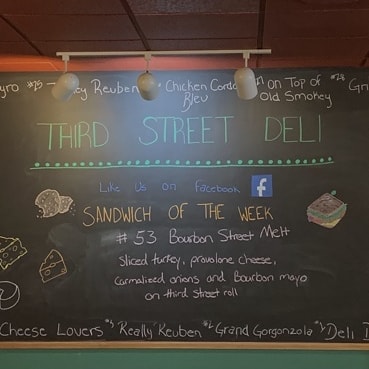 yro #29 Reuben • Chicken Cordon on Top of #28
Bleu Old Smokey
THIRD STREET DELI
Like Us on Facebook f
SANDWICH OF THE WEEK
#53 Bourbon Street Melt
sliced turkey, provalone cheese,
carmalized onions and Bourbon mayo
on third street roll
Cheese Lovers #3 "Really" Reuben #2 Grand Gorgonzola #1 Deli